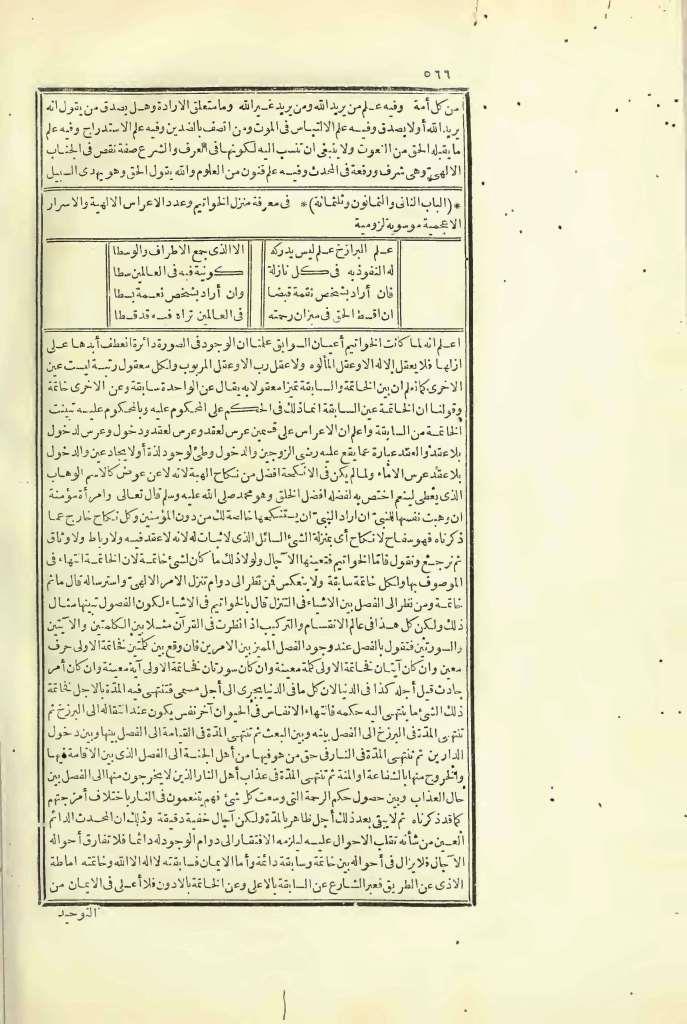 ٥٦٦
من كل أمة وفيه علم من يريد الله ومن يريد غير الله وما متعلق الارادة وهل يصدق من يقول انه
يريد الله أولا يصدق وفيه علم الالتباس فى الموت ومن اتصف بالضدين وفيه علم الاستدراج وفيه علم
ما يقبله الحق من النعوت ولا ينبغى ان تنسب اليه لكونها فى العرف والشرع صفة نقص فى الجناب
الالهىّ وهى شرف ورفعة فى المحدث وفيه علم فنون من العلوم والله يقول الحق وهو يهدى السبيل
*(الباب الثانى والثمانون وثلثمائة)* فى معرفة منزل الخواتيم وعدد الاعراس الالهية والاسرار
الاعجمية موسوية لزومية
علم البرازخ علم ليس يدركه الا الذى جمع الاطراف والوسطا
له النفوذ به فى كل نازلة كونية فيه فى العالمين سطا
فان أراد بشخص نقمة قبضا وان أراد بشخص نعمة بسطا
ان اقسط الحق فى ميزان رحمته فى العالمين تراه فيه قد قسطا
اعلم انه لما كانت الخواتيم أعيان السوابق علمنا ان الوجود فى الصورة دائرة انعطف أبدها على
ازلها فلا يعقل إلاله الا وعقل المألوه ولا عقل رب الا وعقل المربوب ولكل معقول رتبة ليست عين
الاخرى كما نعلم ان بين الخاتمة والسابقة تميزا معقولا به يقال عن الواحدة سابقة وعن الاخرى خاتمة
وقولنا ان الخاتمة عين السابقة انما ذلك فى الحكم على المحكوم عليه وبالمحكوم عليه تبينت
الخاتمة من السابقة واعلم ان الاعراس على قسمين عرس لعقد وعرس لعقد ودخول وعرس لدخول
بلا عقد والعقد عبارة عما يقع عليه رضى الزوجين والدخول وطئ لوجود لذة أو لايجاد عين والدخول
بلا عقد عرس الاماء ولما لم يكن فى الانكحة افضل من نكاح الهبة لانه لا عن عوض كالاسم الوهاب
الذى يعطى لينعم اختص به لفضله افضل الخلق وهو محمد صلى الله عليه وسلم قال تعالى وامرأة مؤمنة
ان وهبت نفسها للنبىّ ان اراد النبىّ ان يستنكحها خالصة لك من دون المؤمنين وكل نكاح خارج عما
ذكرناه فهو سفاح لا نكاح أى بمنزلة الشئ السائل الذى لا ثبات له لانه لا عقد فيه ولا رباط ولا وثاق
ثم نرجع ونقول فاما الخواتم فتعينها الآجال ولولا ذلك ما كان لشئ خاتمة لان الخاتمة انتهاء فى
الموصوف بها ولكل خاتمة سابقة ولا ينعكس فمن نظر الى دوام تنزل الامر الالهىّ واسترساله قال ما ثم
خاتمة ومن نظر الى الفصل بين الاشياء فى التنزل قال بالخواتيم فى الاشياء لكون الفصول تبينها مثال
ذلك ولكن كل هذا فى عالم الانقسام والتركيب اذا نظرت فى القرآن مثلا بين الكلمتين والآيتين
والسورتين فتقول بالفصل عند وجود الفصل المميز بين الامرين فان وقع بين كلمتين فخاتمة الاولى حرف
معين وان كان آيتان فخاتمة الاولى كلمة معينة وان كان سورتان فخاتمة الاولى آية معينة وان كان أمر
حادث قيل أجله كذا فى الدنيا لان كل ما فى الدنيا يجرى الى أجل مسمى فتنتهى فيه المدّة بالاجل فخاتمة
ذلك الشئ ما ينتهى اليه حكمه فانتهاء الانفاس فى الحيوان آخر نفس يكون عند انتقاله الى البرزخ ثم
تنتهى المدّة فى البرزخ الى الفصل بينه وبين البعث ثم تنتهى المدّة فى القيامة الى الفصل بينها وبين دخول
الدارين ثم تنتهى المدّة فى النار فى حق من هو فيها من أهل الجنة الى الفصل الذى بين الاقامة فيها
والخروج منها بالشفاعة او المنة ثم تنتهى المدّة فى عذاب أهل النار الذين لا يخرجون منها الى الفصل بين
حال العذاب وبين حصول حكم الرحمة التى وسعت كل شئ فهم يتنعمون فى النار باختلاف أمزجتهم
كما قد ذكرناه ثم لا يبقى بعد ذلك أجل ظاهر بالمدة ولكن آجال خفية دقيقة وذلك ان المحدث الدائم
العين من شأنه تقلب الاحوال عليه ليلزمه الافتقار الى دوام الوجود له دائما فلا تفارق أحواله
الآجال فلا يزال فى أحواله بين خاتمة وسابقة دائمة وأما الايمان فسابقته لا اله الا الله وخاتمته اماطة
الاذى عن الطريق فعبر الشارع عن السابقة بالاعلى وعن الخاتمة بالادون فلا أعلى فى الايمان من
التوحيد